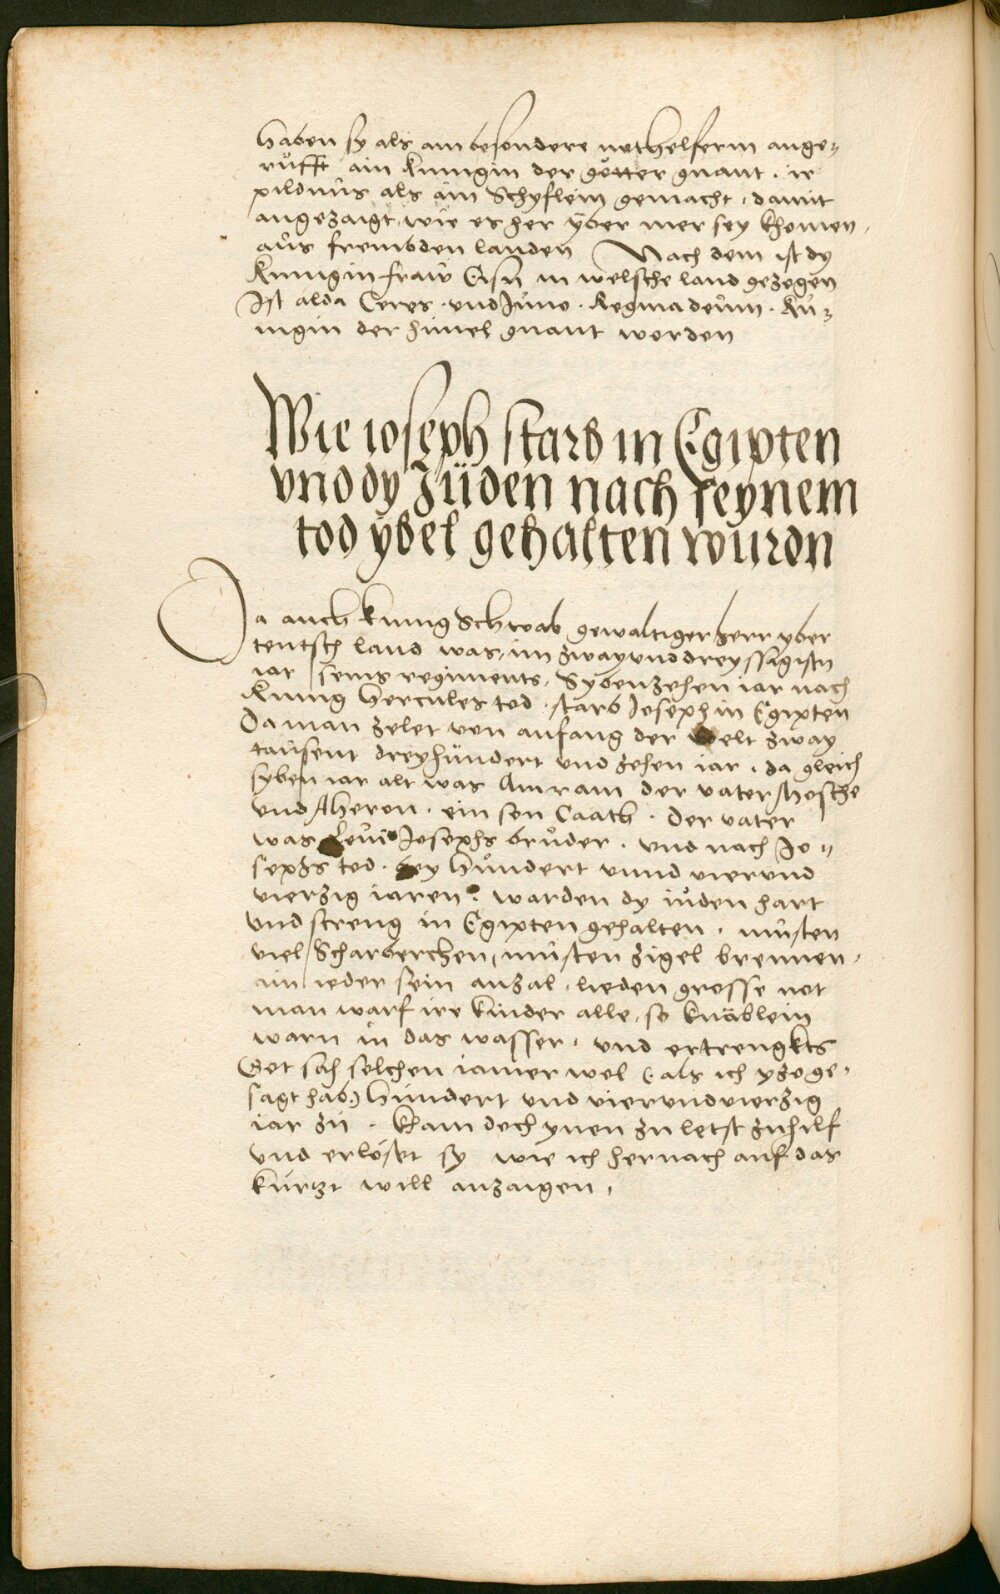 haben sy als ain besondere nothelferin ange„
růfft ain Kunigin der götter gnant . ir
pildnus als ain Schyflein gemacht . damit
angezaigt wie es her yber mer sey khomen .
aus frembden landen Nach dem ist dy
Kunigin fraw Eisn in welsche land gezogen
Ist alda Ceres . und Juno . Regina deum . Ku„
nigin der himel gnant worden
Wie ioseph starb in Egipten
vnd dy Jüden nach seynem
tod ybel gehalten wurdn
Da auch kunig Schwab gewaltiger herr yber
teutsch land was, im zwayunddreyssigistn
iar seins regiments, Sybenzehen iar nach
Kunig Hercules tod . starb Joseph in Egipten
Da man zelet von anfang der welt zway
tausent dreyhundert und zehen iar . da gleich
syben iar alt was Amram der vater Mosche
und Aheron . ein son Caath . der vater
was Leui Josephs brůder . und nach Jo„
sephs tod . bey hundert vnnd vierund
vierzig iaren . warden dy iuden hart
und streng in Egipten gehalten . musten
viel Scharberchen, musten zigel brennen .
ain ieder sein anzal . lieden grosse not
man warf ire kinder alle, so knäblein
warn in das wasser . und ertrengkts
Got sah solchen iamer wol (als ich yzo ge„
sagt hab) hundert und vierundvierzig
iar zu . Kam doch ynen zu letst zuhilf
und erlöset sy wie ich hernach auf das
kurtzt will anzaigen .